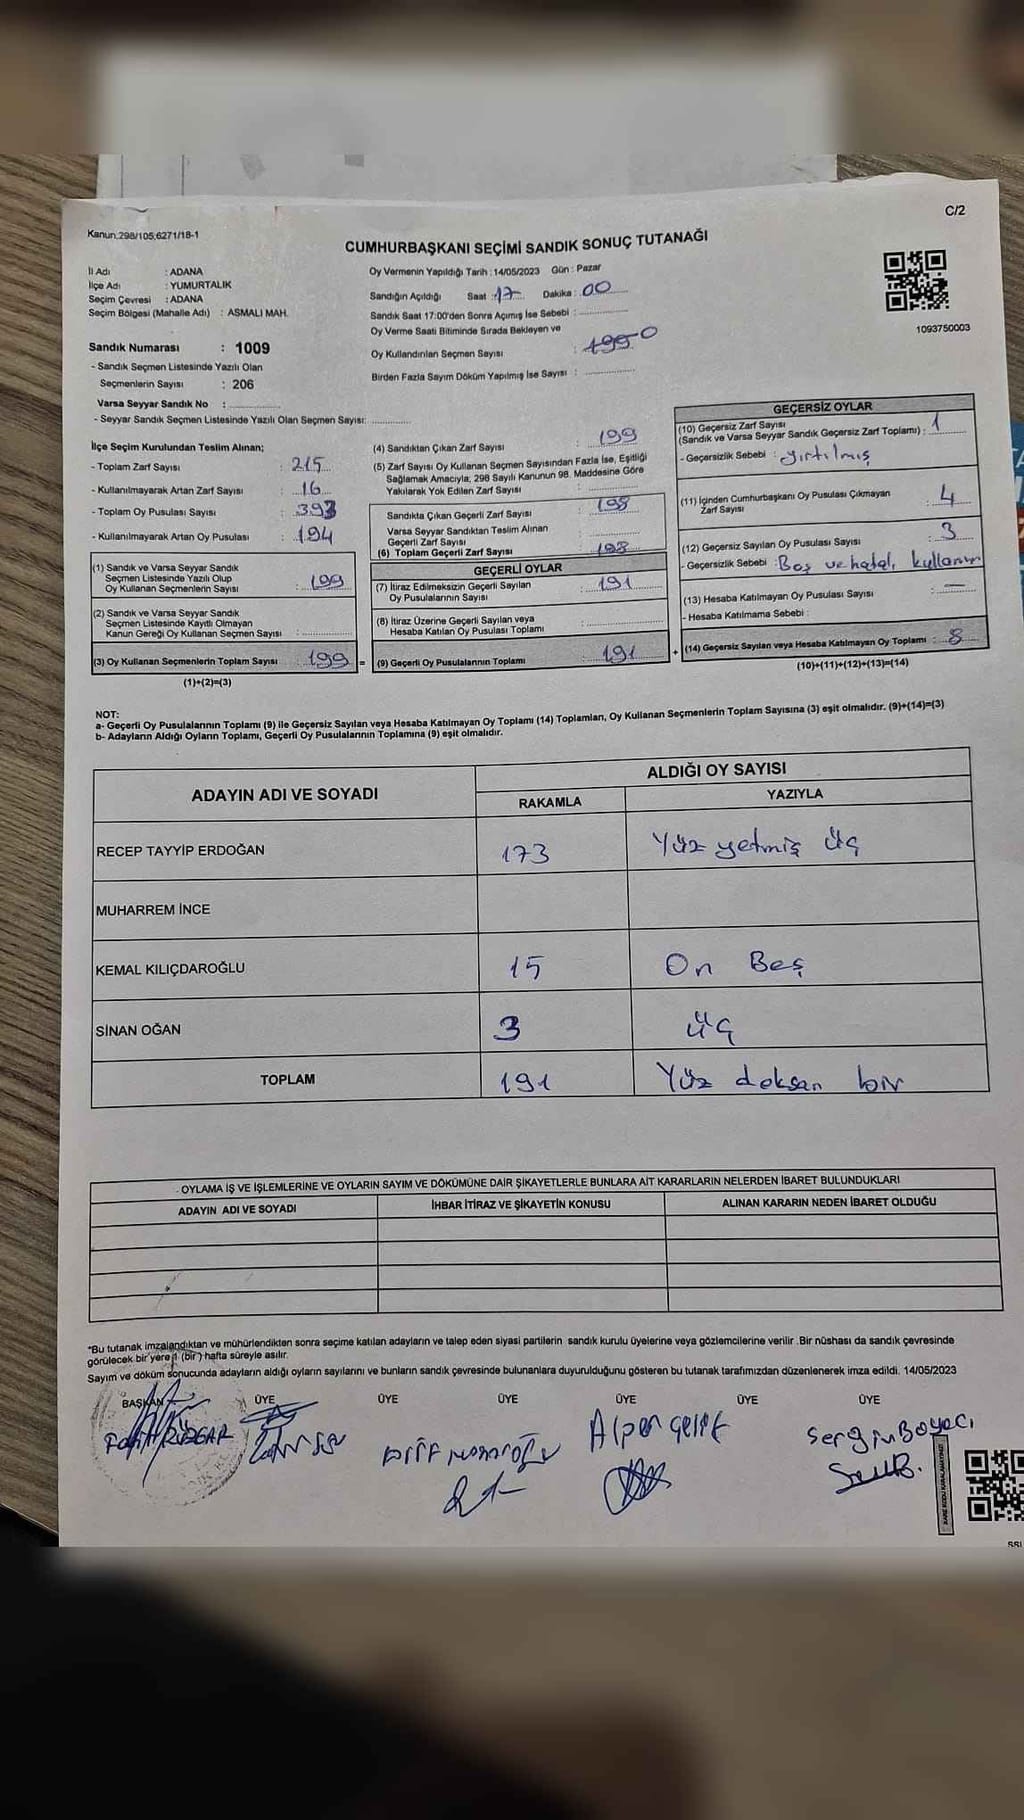 C/2
Kanun:298/105;6271/18-1
CUMHURBAŞKANI SEÇİMİ SANDIK SONUÇ TUTANAĞI
İl Adı : ADANA
İlçe Adı : YUMURTALIK
Seçim Çevresi : ADANA
Seçim Bölgesi (Mahalle Adı) : ASMALI MAH.
Sandık Numarası : 1009
- Sandık Seçmen Listesinde Yazılı Olan
Seçmenlerin Sayısı : 206
Varsa Seyyar Sandık No :
- Seyyar Sandık Seçmen Listesinde Yazılı Olan Seçmen Sayısı:
Oy Vermenin Yapıldığı Tarih : 14/05/2023 Gün : Pazar
Sandığın Açıldığı Saat : 17 Dakika : 00
Sandık Saat 17:00'den Sonra Açımış İse Sebebi :
Oy Verme Saati Bitiminde Sırada Bekleyen ve
Oy Kullandırılan Seçmen Sayısı :
Birden Fazla Sayım Döküm Yapılmış İse Sayısı :
1093750003
İlçe Seçim Kurulundan Teslim Alınan;
- Toplam Zarf Sayısı : 215
- Kullanılmayarak Artan Zarf Sayısı : 16
- Toplam Oy Pusulası Sayısı : 393
- Kullanılmayarak Artan Oy Pusulası : 194
(1) Sandık ve Varsa Seyyar Sandık
Seçmen Listesinde Yazılı Olup
Oy Kullanan Seçmenlerin Sayısı : 199
(2) Sandık ve Varsa Seyyar Sandık
Seçmen Listesinde Kayıtlı Olmayan
Kanun Gereği Oy Kullanan Seçmen Sayısı :
(3) Oy Kullanan Seçmenlerin Toplam Sayısı : 199 =
(1)+(2)=(3)
(4) Sandıktan Çıkan Zarf Sayısı : 199
(5) Zarf Sayısı Oy Kullanan Seçmen Sayısından Fazla İse, Eşitliği
Sağlamak Amacıyla; 298 Sayılı Kanunun 98. Maddesine Göre
Yakılarak Yok Edilen Zarf Sayısı :
Sandıkta Çıkan Geçerli Zarf Sayısı : 198
Varsa Seyyar Sandıktan Teslim Alınan
Geçerli Zarf Sayısı :
(6) Toplam Geçerli Zarf Sayısı : 198
GEÇERLİ OYLAR
(7) İtiraz Edilmeksizin Geçerli Sayılan
Oy Pusulalarının Sayısı : 191
(8) İtiraz Üzerine Geçerli Sayılan veya
Hesaba Katılan Oy Pusulası Toplamı :
(9) Geçerli Oy Pusulalarının Toplamı : 191 +
GEÇERSİZ OYLAR
(10) Geçersiz Zarf Sayısı
(Sandık ve Varsa Seyyar Sandık Geçersiz Zarf Toplamı) : 1
- Geçersizlik Sebebi : yırtılmış
(11) İçinden Cumhurbaşkanı Oy Pusulası Çıkmayan
Zarf Sayısı : 4
(12) Geçersiz Sayılan Oy Pusulası Sayısı : 3
- Geçersizlik Sebebi : Boş ve hatalı kullanım
(13) Hesaba Katılmayan Oy Pusulası Sayısı : —
- Hesaba Katılmama Sebebi :
(14) Geçersiz Sayılan veya Hesaba Katılmayan Oy Toplamı : 8
(10)+(11)+(12)+(13)=(14)
NOT:
a- Geçerli Oy Pusulalarının Toplamı (9) ile Geçersiz Sayılan veya Hesaba Katılmayan Oy Toplamı (14) Toplamları, Oy Kullanan Seçmenlerin Toplam Sayısına (3) eşit olmalıdır. (9)+(14)=(3)
b- Adayların Aldığı Oyların Toplamı, Geçerli Oy Pusulalarının Toplamına (9) eşit olmalıdır.
ADAYIN ADI VE SOYADI ALDIĞI OY SAYISI
RAKAMLA YAZIYLA
RECEP TAYYİP ERDOĞAN 173 Yüz yetmiş üç
MUHARREM İNCE
KEMAL KILIÇDAROĞLU 15 On Beş
SİNAN OĞAN 3 üç
TOPLAM 191 Yüz doksan bir
OYLAMA İŞ VE İŞLEMLERİNE VE OYLARIN SAYIM VE DÖKÜMÜNE DAİR ŞİKAYETLERLE BUNLARA AİT KARARLARIN NELERDEN İBARET BULUNDUKLARI
ADAYIN ADI VE SOYADI İHBAR İTİRAZ VE ŞİKAYETİN KONUSU ALINAN KARARIN NEDEN İBARET OLDUĞU
*Bu tutanak imzalandıktan ve mühürlendikten sonra seçime katılan adayların ve talep eden siyasi partilerin sandık kurulu üyelerine veya gözlemcilerine verilir .Bir nüshası da sandık çevresinde
görülecek bir yere 1 (bir) hafta süreyle asılır.
Sayım ve döküm sonucunda adayların aldığı oyların sayılarını ve bunların sandık çevresinde bulunanlara duyurulduğunu gösteren bu tutanak tarafımızdan düzenlenerek imza edildi. 14/05/2023
BAŞKAN ÜYE ÜYE ÜYE ÜYE ÜYE ÜYE
Fatih RÜZGAR Alper Çelik Sergin Boyacı